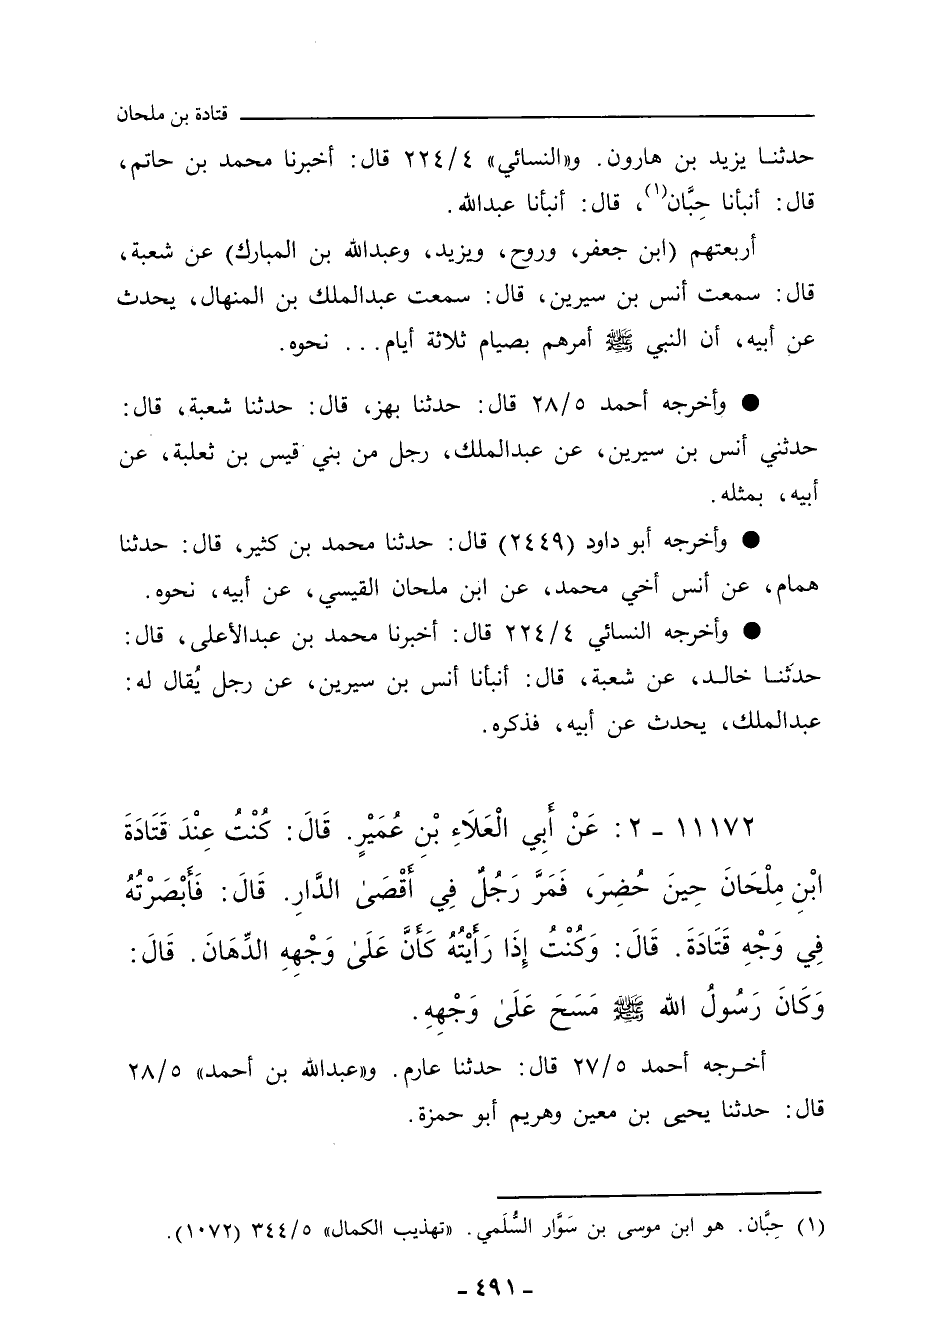 قتادة بن ملحان
حدثنـا يزيد بن هارون. و«النسائي» ٢٢٤/٤ قال: أخبرنا محمد بن حاتم،
قال: أنبأنا حِبَّان(١)، قال: أنبأنا عبدالله.
أربعتهم (ابن جعفر، وروح، ويزيد، وعبدالله بن المبارك) عن شعبة،
قال: سمعت أنس بن سيرين، قال: سمعت عبدالملك بن المنهال، يحدث
عن أبيه، أن النبي ﷺ أمرهم بصيام ثلاثة أيام... نحوه.
● وأخرجه أحمد ٢٨/٥ قال: حدثنا بهز، قال: حدثنا شعبة، قال:
حدثني أنس بن سيرين، عن عبدالملك، رجل من بني قيس بن ثعلبة، عن
أبيه، بمثله.
● وأخرجه أبو داود (٢٤٤٩) قال: حدثنا محمد بن كثير، قال: حدثنا
همام، عن أنس أخي محمد، عن ابن ملحان القيسي، عن أبيه، نحوه.
● وأخرجه النسائي ٢٢٤/٤ قال: أخبرنا محمد بن عبدالأعلى، قال:
حدثنـا خالـد، عن شعبة، قال: أنبأنا أنس بن سيرين، عن رجل يُقال له:
عبدالملك، يحدث عن أبيه، فذكره.
١١١٧٢ - ٢: عَنْ أَبِي الْعَلَاءِ بْنِ عُمَيْرٍ. قَالَ: كُنْتُ عِنْدَ قَتَادَةَ
ابْنِ مِلْحَانَ حِينَ حُضِرَ، فَمَرَّ رَجُلٌ فِي أَقْصَىٰ الدَّارِ. قَالَ: فَأَبْصَرْتُهُ
فِي وَجْهِ قَتَادَةَ. قَالَ: وَكُنْتُ إِذَا رَأَيْتُهُ كَأَنَّ عَلَىٰ وَجْهِهِ الدِّهَانَ. قَالَ:
وَكَانَ رَسُولُ الله ﷺ مَسَحَ عَلَىٰ وَجْهِهِ.
أخـرجه أحمد ٢٧/٥ قال: حدثنا عارم. و«عبدالله بن أحمد» ٢٨/٥
قال: حدثنا يحيى بن معين وهريم أبو حمزة.
(١) حِبَّان. هو ابن موسى بن سَوَّار السُّلَمي. «تهذيب الكمال» ٣٤٤/٥ (١٠٧٢).
- ٤٩١ -